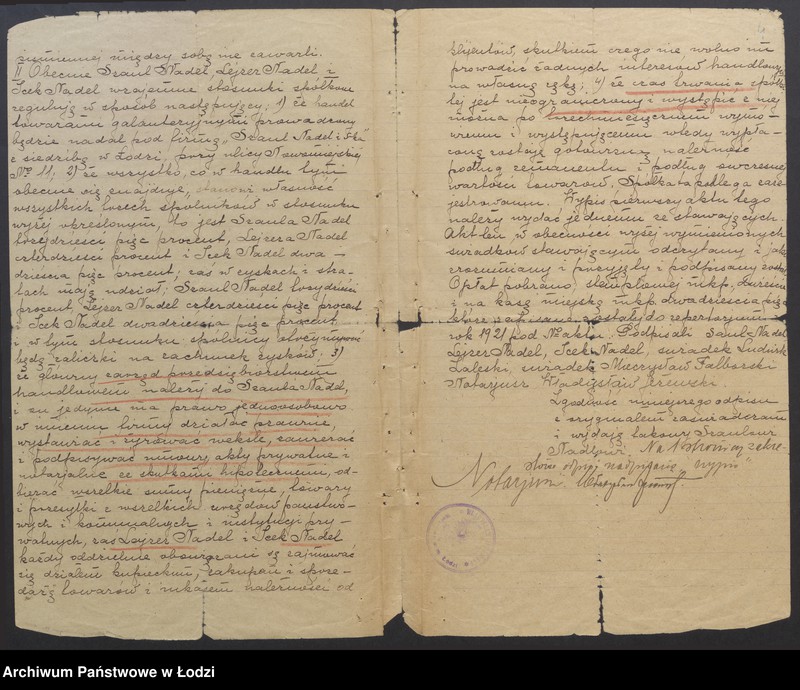 piśmiennej między sobą nie zawarli.
II Obecnie Szaul Nadel, Lejzer Nadel i
Icek Nadel wzajemne stosunki spółkowe
regulują w sposób następujący: 1) że handel
towarami galanteryjnymi prowadzony
będzie nadal pod firmą „Szaul Nadel i S-ka
z siedzibą w Łodzi, przy ulicy Nowomiejskiej
№ 11, 2) że wszystko, co w handlu tym
obecnie się znajduje, stanowi własność
wszystkich trzech spólników w stosunku
wyżej określonym, to jest Szaula Nadel
trzydzieści pięć procent, Lejzera Nadel
czterdzieści procent i Icek Nadel dwa-
dzieścia pięć procent; zaś w zyskach i stra-
tach mają udział: Szaul Nadel trzydzieści
procent, Lejzer Nadel czterdzieści pięć procent
i Icek Nadel dwadzieścia pięć procent
i w tym stosunku spólnicy
będą zaliczki na rachunek zysków; 3)
że główny zarząd przedsiębiorstwem
handlowem należy do Szaula Nadel,
i on jedynie ma prawo jednoosobowo
w imieniu firmy działać prawnie,
wystawiać i żyrować weksle, zawierać
i podpisywać umowy, akty prywatne i
notarjalne ze skutkami hipotecznemi, od-
bierać wszelkie sumy pieniężne, towary
i przesyłki z wszelkich urzędów państwo-
wych i komunalnych i instytucji pry-
watnych, zaś Lejzer Nadel i Icek Nadel
każdy oddzielnie obowiązani są zajmować
się działem kupieckim, zakupami i sprze-
dażą towarów i inkasem należności od
klijentów, skutkiem czego nie wolno im
prowadzić żadnych interesów handlowych
na własną rękę; 4) że czas trwania spół-
tej jest nieograniczony i wystąpić z niej
można po trzechmiesięcznem wymó-
wieniu i występującemu wtedy wypła-
coną zostaje gotowizną należność
podług remanentu i podług ówczesnej
wartości towarów. Spółka ta podlega zare-
jestrowaniu. Wypis pierwszy aktu tego
należy wydać jednemu ze stawających.
Akt ten, w obecności wyżej wymienionych
świadków stawającym odczytany i jako
zrozumiany i przyjęty i podpisany został
Opłat pobrano, stemplowej mkp.
i na kasę miejską mkp. dwadzieścia pięć
które zapisane zostały do repertorjum
rok 1921 pod № aktu. Podpisali: Saul Nadel
Lejzer Nadel, Icek Nadel, świadek Ludwik
Zaleski, świadek Mieczysław Falborski
Notarjusz Władysław
Zgodność niniejszego odpisu
z oryginałem zaświadczam
i wydaję takowy Szaulowi
Nadlowi. Na 1 stronicy
słowo
Notarjusz Władysław
Archiwum Państwowe w Łodzi